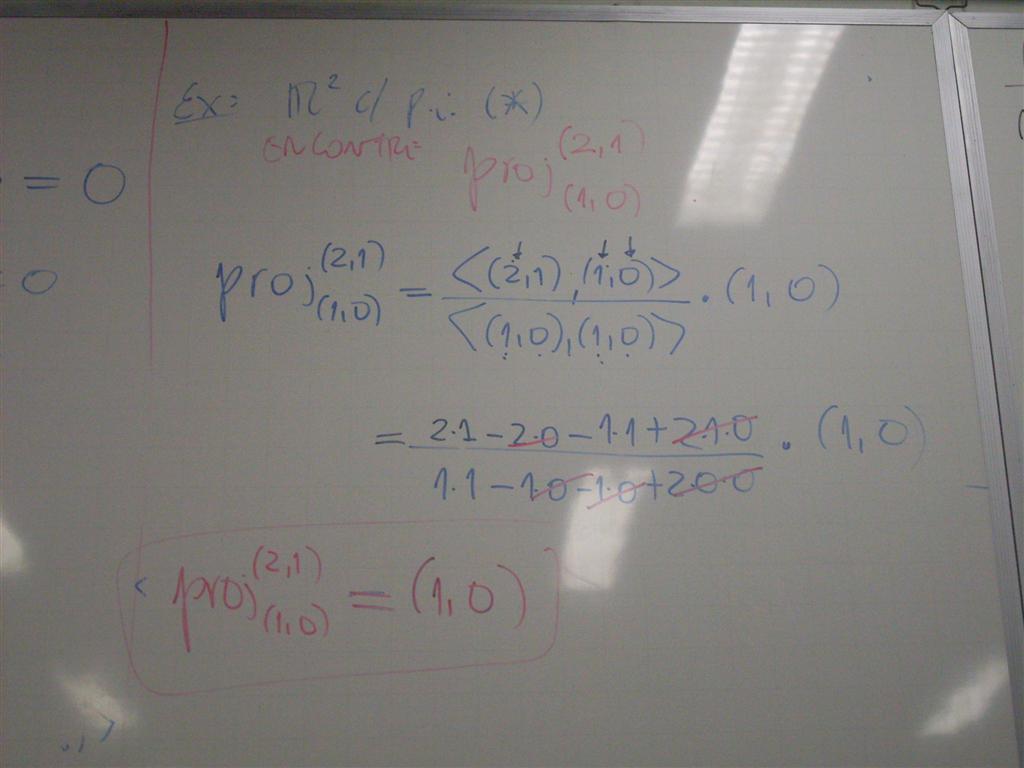 Ex: ℝ² c/ p.i. (*)
ENCONTRE proj_(1,0)^(2,1)
= 0
= 0
proj_(1,0)^(2,1) = <(2,1),(1,0)> / <(1,0),(1,0)> · (1,0)
= 2·1 - 2·0 - 1·1 + 2·1·0 / 1·1 - 1·0 - 1·0 + 2·0·0 · (1,0)
proj_(1,0)^(2,1) = (1,0)